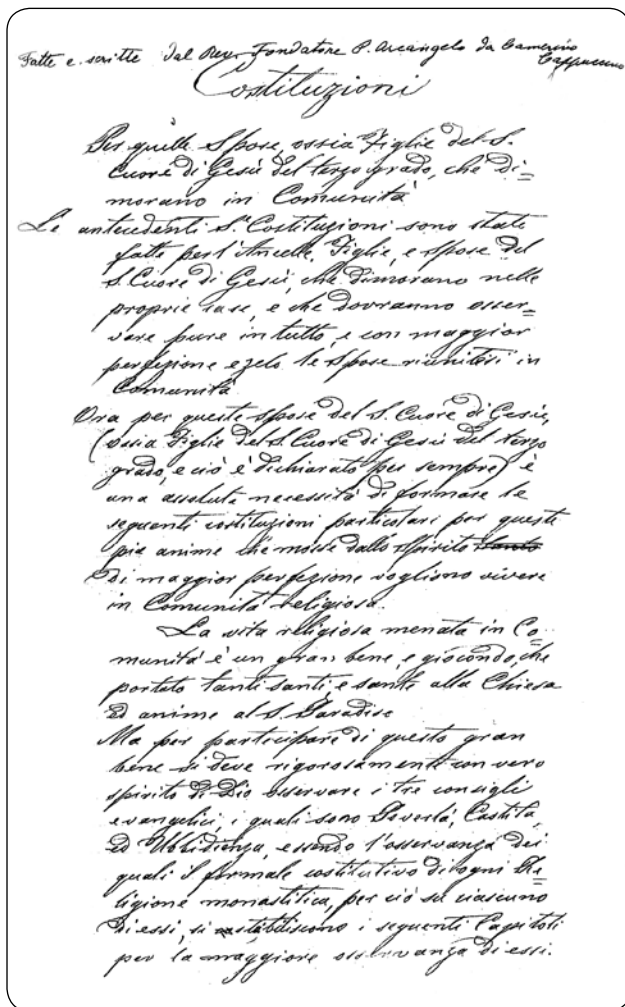 Fatte e scritte dal Rev. Fondatore P. Arcangelo da Camerino
Cappuccino
Costituzioni
Per quelle Spose, ossia Figlie del S.
Cuore di Gesù del terzo grado, che di=
morano in Comunità
Le antecedenti S.e Costituzioni sono state
fatte per l'Ancelle, Figlie, e Spose del
S. Cuore di Gesù, che dimorano nelle
proprie case, e che dovranno osser=
vare pure in tutto, e con maggior
perfezione e zelo le Spose riunitesi in
Comunità.
Ora per queste spose del S. Cuore di Gesù,
(ossia Figlie del S. Cuore di Gesù del terzo
grado, e ciò è dichiarato per sempre) è
una assoluta necessità di formare le
seguenti costituzioni particolari per queste
pie anime che mosse dallo spirito Santo
di maggior perfezione vogliono vivere
in Comunità religiosa.
La vita religiosa menata in Co=
munità è un gran bene, e giocondo, che
portato tanti santi, e sante alla Chiesa
ed anime al S. Paradiso
Ma per participare di questo gran
bene si deve rigorosamente con vero
spirito di Dio osservare i tre consigli
evangelici, i quali sono Povertà, Castità,
ed Ubbidienza, essendo l'osservanza dei
quali il formale costitutivo di ogni Re=
ligione monastica, per ciò su ciascuno
di essi, si stabiliscono i seguenti Capitoli
per la maggiore osservanza di essi.